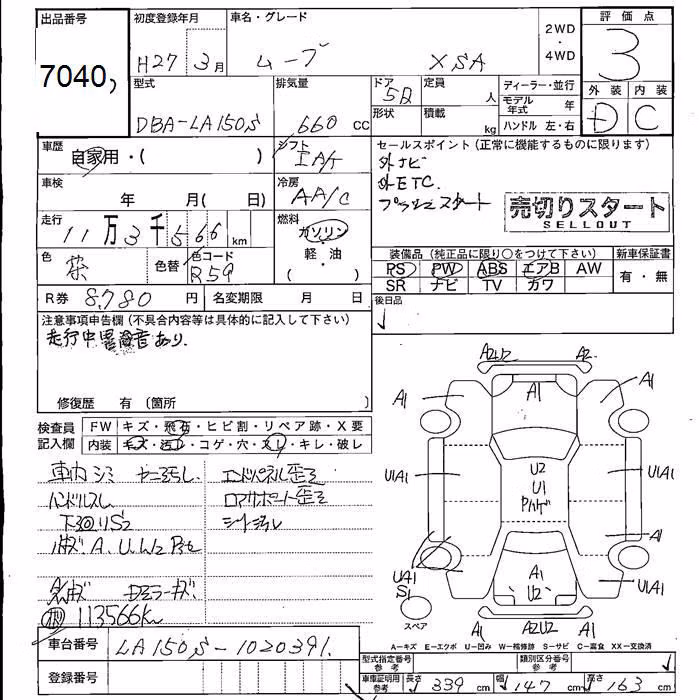 出品番号 初度登録年月 車名・グレード 2WD・4WD 評価点
7040 H27 3月 ムーブ XSA 3
型式 排気量 ドア 5D 定員 人 ディーラー・並行 外装 内装
DBA-LA150S 660 cc 形状 積載 kg モデル年式 年 D C
ハンドル 左・右
車歴 自家用・( ) シフト IAT セールスポイント(正常に機能するものに限ります)
車検 年 月( 日) 冷房 AA/C 外ナビ
外ETC.
プッシュスタート 売切りスタート
SELLOUT
走行 11万3千566km 燃料 ガソリン・軽油・( )
色 紫 色替 色コード R59 装備品(純正品に限り○をつけて下さい) 新車保証書
PS PW ABS エアB AW 有・無
SR ナビ TV カワ
R券 8,780円 名変期限 月 日 後日品
注意事項申告欄(不具合内容等は具体的に記入して下さい)
走行中異音あり.
修復歴 有(箇所
検査員記入欄 FW キズ・飛石・ヒビ割・リペア跡・X要
内装 キズ・汚れ・コゲ・穴・スレ・キレ・破レ
車内シミ ヤニ汚れ. エンドパネル歪ミ
ハンドルスレ ロアサポート歪ミ
下回りS2
A. U. W2
113566km
車台番号 LA150S-1020391.
登録番号
A2U2 A2
A1 A1 A1
U1A1 U2 U1A1
U1
Pハゲ
A1
UA1 A1 U1A1
S1 U2
スペア A1 A2U2 A1
A−キズ E−エクボ U−凹み W−補修跡 S−サビ C−腐食 XX−交換済
型式指定番号 参考 類別区分番号 参考
車庫証明用参考 長さ 339cm 幅 147cm 高さ 163cm